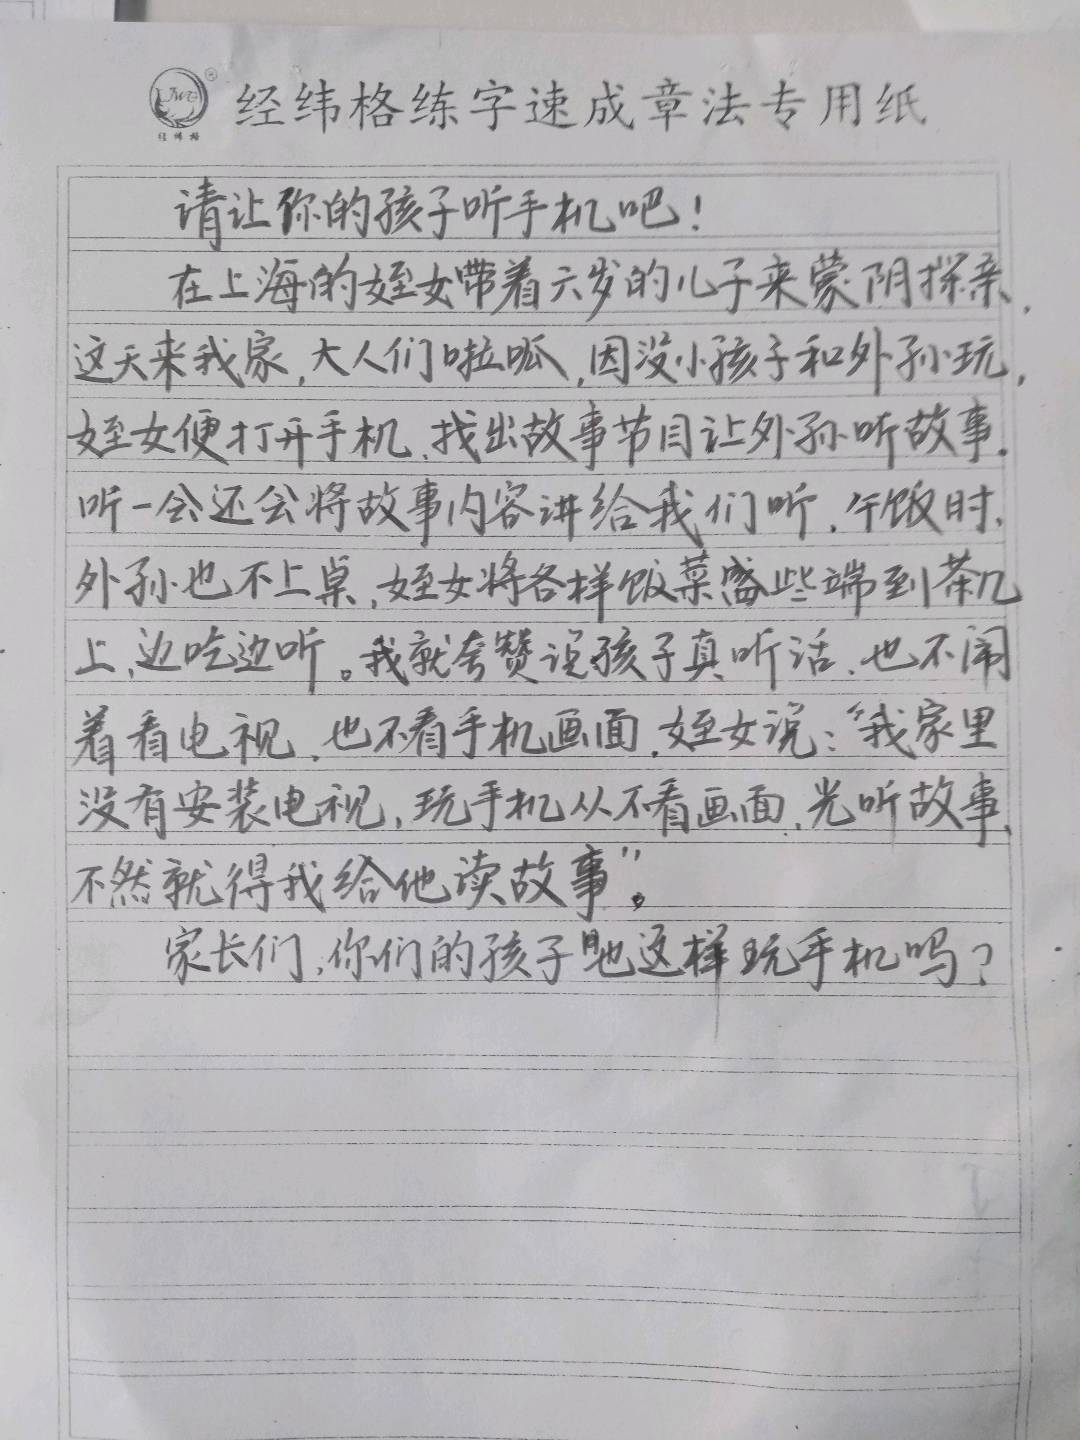 JWG
经纬格
经纬格练字速成章法专用纸
请让你的孩子听手机吧！
在上海的姪女带着六岁的儿子来蒙阴探亲，
这天来我家，大人们啦呱，因没小孩子和外孙玩，
姪女便打开手机，找出故事节目让外孙听故事。
听一会还会将故事内容讲给我们听，午饭时，
外孙也不上桌，姪女将各样饭菜盛些端到茶几
上，边吃边听。我就夸赞说孩子真听话，也不闹
着看电视，也不看手机画面，姪女说：“我家里
没有安装电视，玩手机从不看画面，光听故事，
不然就得我给他读故事”。
家长们，你们的孩子也这样玩手机吗？